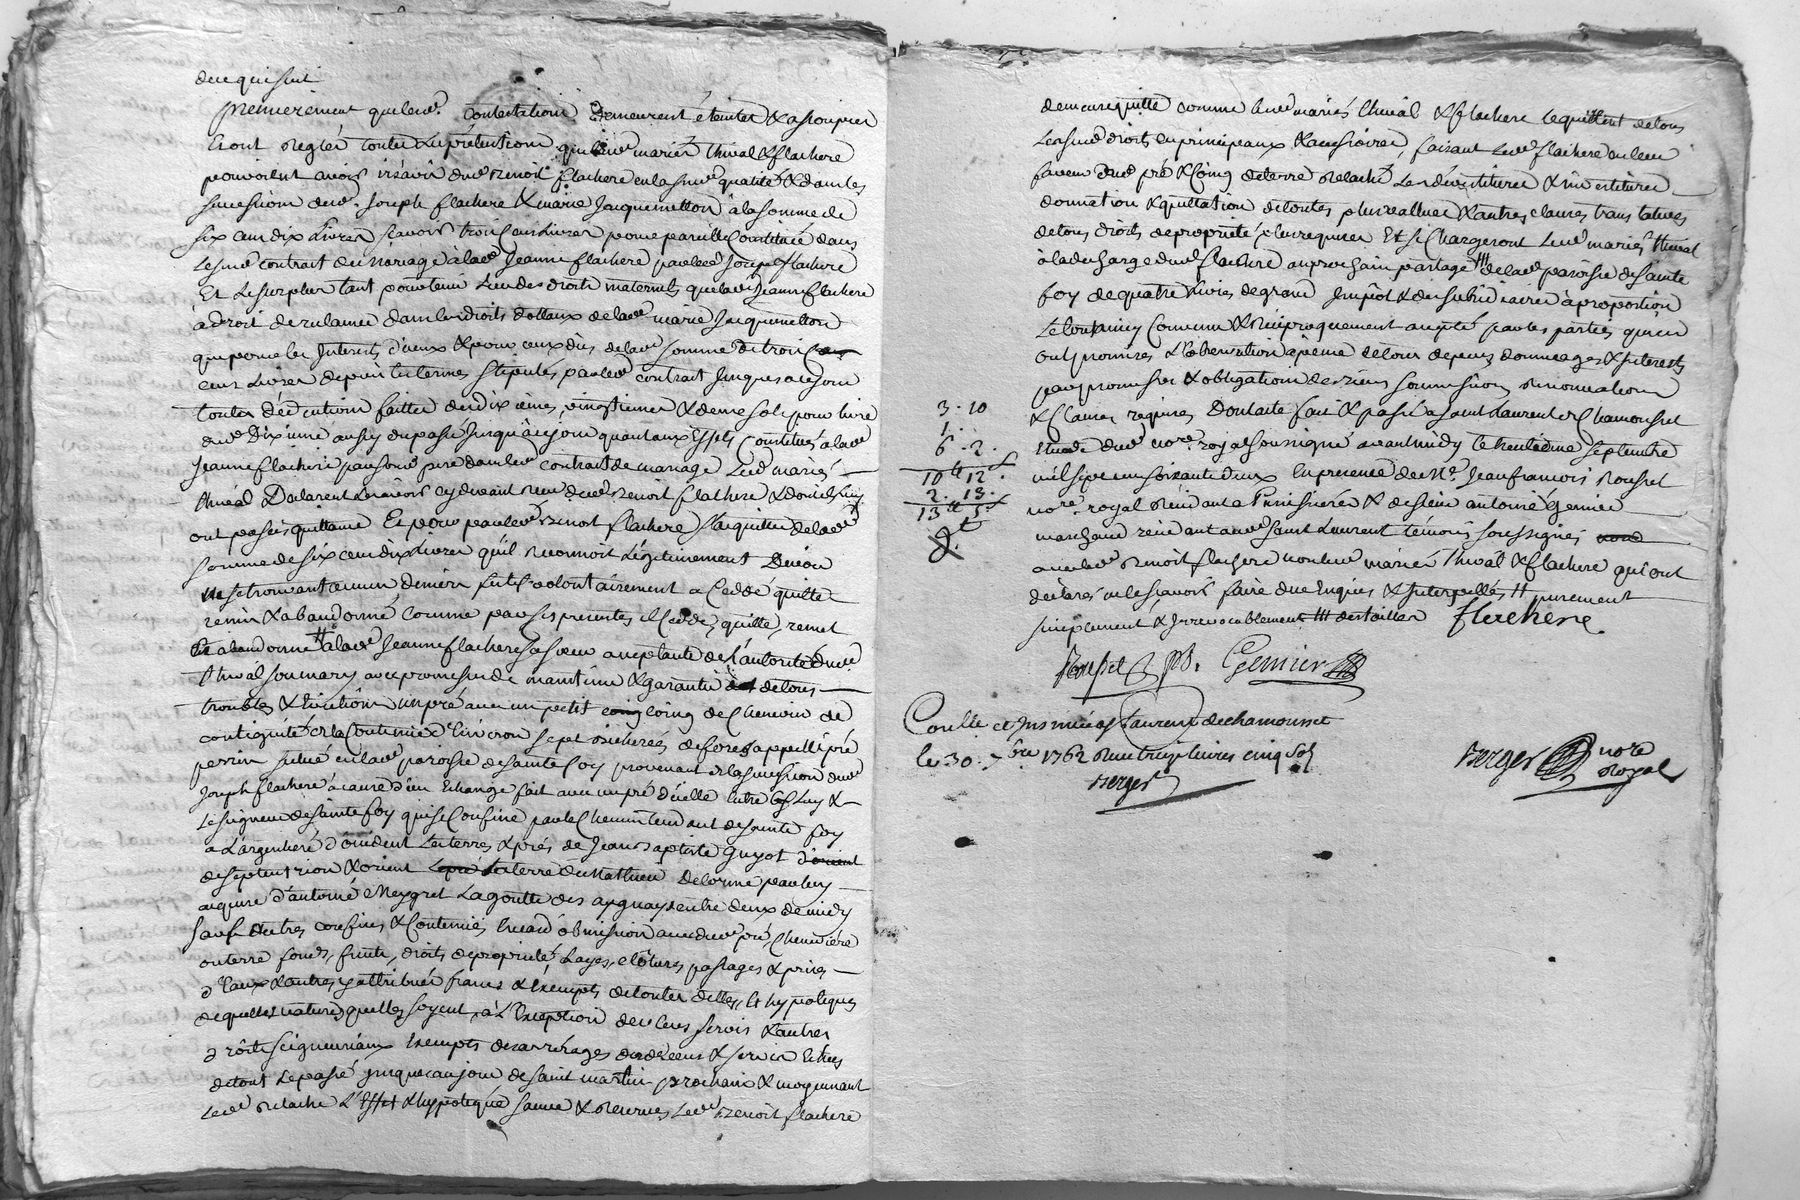 de ce qui suit
premierement que lesd. contestations demeurent éteintes & assoupies
& ont reglés toutes les prétentions que lesd mariés thival & flachere
pouvoient avoir vis à vis dud Benoit flachere en lasusd qualité & dans les
successions desd. Joseph flachere & marie Jacquemetton à la somme de
six cent dix Livres scavoir trois cent Livres pour pareille Constituée dans
le susd contrat de mariage à lad Jeanne flachere par led Joseph flachere
Et le surplus tant pour tenir Lieu des droits maternels que lad Jeanne flachere
à droit de reclamer dans les droits dottaux de lad marie Jacquemetton
que pour les Interets d'iceux & pour ceux dus de lad somme de trois
cent Livres depuis les termes stipulés par led contrat Jusques a ce jour
toutes déductions faittes des dixiemes, vingtiemes & deux sols pour livre
du d Dixieme aussy du passé Jusqu'à ce jour quant aux Effets Constitués a lad
Jeanne flachere par son pere dans led contrat de mariage Lesd mariés
thival Declarent Les avoir cy devant reçu dud Benoit flachere & dont ils Luy
ont passés quittance Et pour par led Benoit flachere s'acquitter de lad
somme de six cent dix Livres qu'il reconnoit Légitimement Devoir
ne se trouvant aucun denier il a volontairement a Ceddé quitté
remis & abandonné comme par ses presentes il Cedde, quitte, remet
& abandonne # a lad Jeanne flachere sa soeur acceptante de L'autorité dud
thival son mary avec promesse de maintenir & garantir de tous
troubles & Evictions un pré avec un petit coing de Chenevier de
contiguité de la Contenue d'Environ sept bicherées de forez appellé pré
perrin situé en lad paroisse de sainte foy provenant de la succession dud
Joseph flachere à cause d'un Echange fait avec un pré d'icelle Entre Luy &
Le seigneur de sainte foy qui se Confine par le Chemin tendant de sainte foy
a L'argentiere d'occident Les terres & prés de Jean Baptiste Guyot
de septentrion & orient La terre de Mathieu Delorme par luy
acquise d'antoine Meygret La goutte des ayguays entre deux de midy
sauf autres confins & Contenues Erreur d'obmission avec dud pré, Cheneviere
ou terre fonds, fruits, droits de proprieté, Layes, clôtures passages & prises
d'Eaux & autres y attribués francs & Exempts de toutes dettes, & hypoteques
de quelles natures quelles soyent, à L'Exception des Cens servis & autres
droits seigneuriaux Exempts des arrérages desd Cens & servis Echus
de tout Le passé Jusques au jour de saint martin prochain & moyennant
led relache L'Effet & hypoteque sauve & reserves Led Benoit flachere
demeure quitte comme lesd mariés thival & flachere le quittent de tous
Les susd droits en principaux & accessoires, faisant Led flachere en leur
faveur dud pré & Coing de terre relaché Les devestitures & investitures
donnation & quittation de toutes plusvallues & autres clauses translatives
de tous droits de proprieté y requises Et se Chargeront Lesd mariés thival
à la decharge dud flachere au prochain partage ### de lad paroisse de sainte
foy de quatre Livres de grand Impôt & des subsidiaires à proportion
Le tout ainsy Convenu & réciproquement accepté par les parties qui en
ont promises L'observation à peine de tous depens dommages & Interets
par promesses & obligations de biens soumissions renonciations
& Clauses requises Dont acte fait & passé a saint Laurent de Chamousset
Etude dud no.re royal soussigné avant midy le trentieme septembre
mil sept cent soixante deux En presence de M.e Jean francois rousset
no.re royal residant a Pinissierée & de sieur antoine Genier
marchand residant aud saint Laurent temoins soussignés
avec led Benoit flachere non lesd mariés thival & flachere qui ont
declarés ne le scavoir faire de ce Enquis & Interpellés # purement
simplement & Irrevocablement ### des tailles flechere
3 . 10
1 .
6 . 2 .
10 . 12 .
2 . 13 .
13 . 5 .
Rousset Genier
Conllé et Insinué a st Laurent de chamousset
le 30. 7bre 1762 Reçu treize livres cinq sols
Berger
Berger nore
Royal